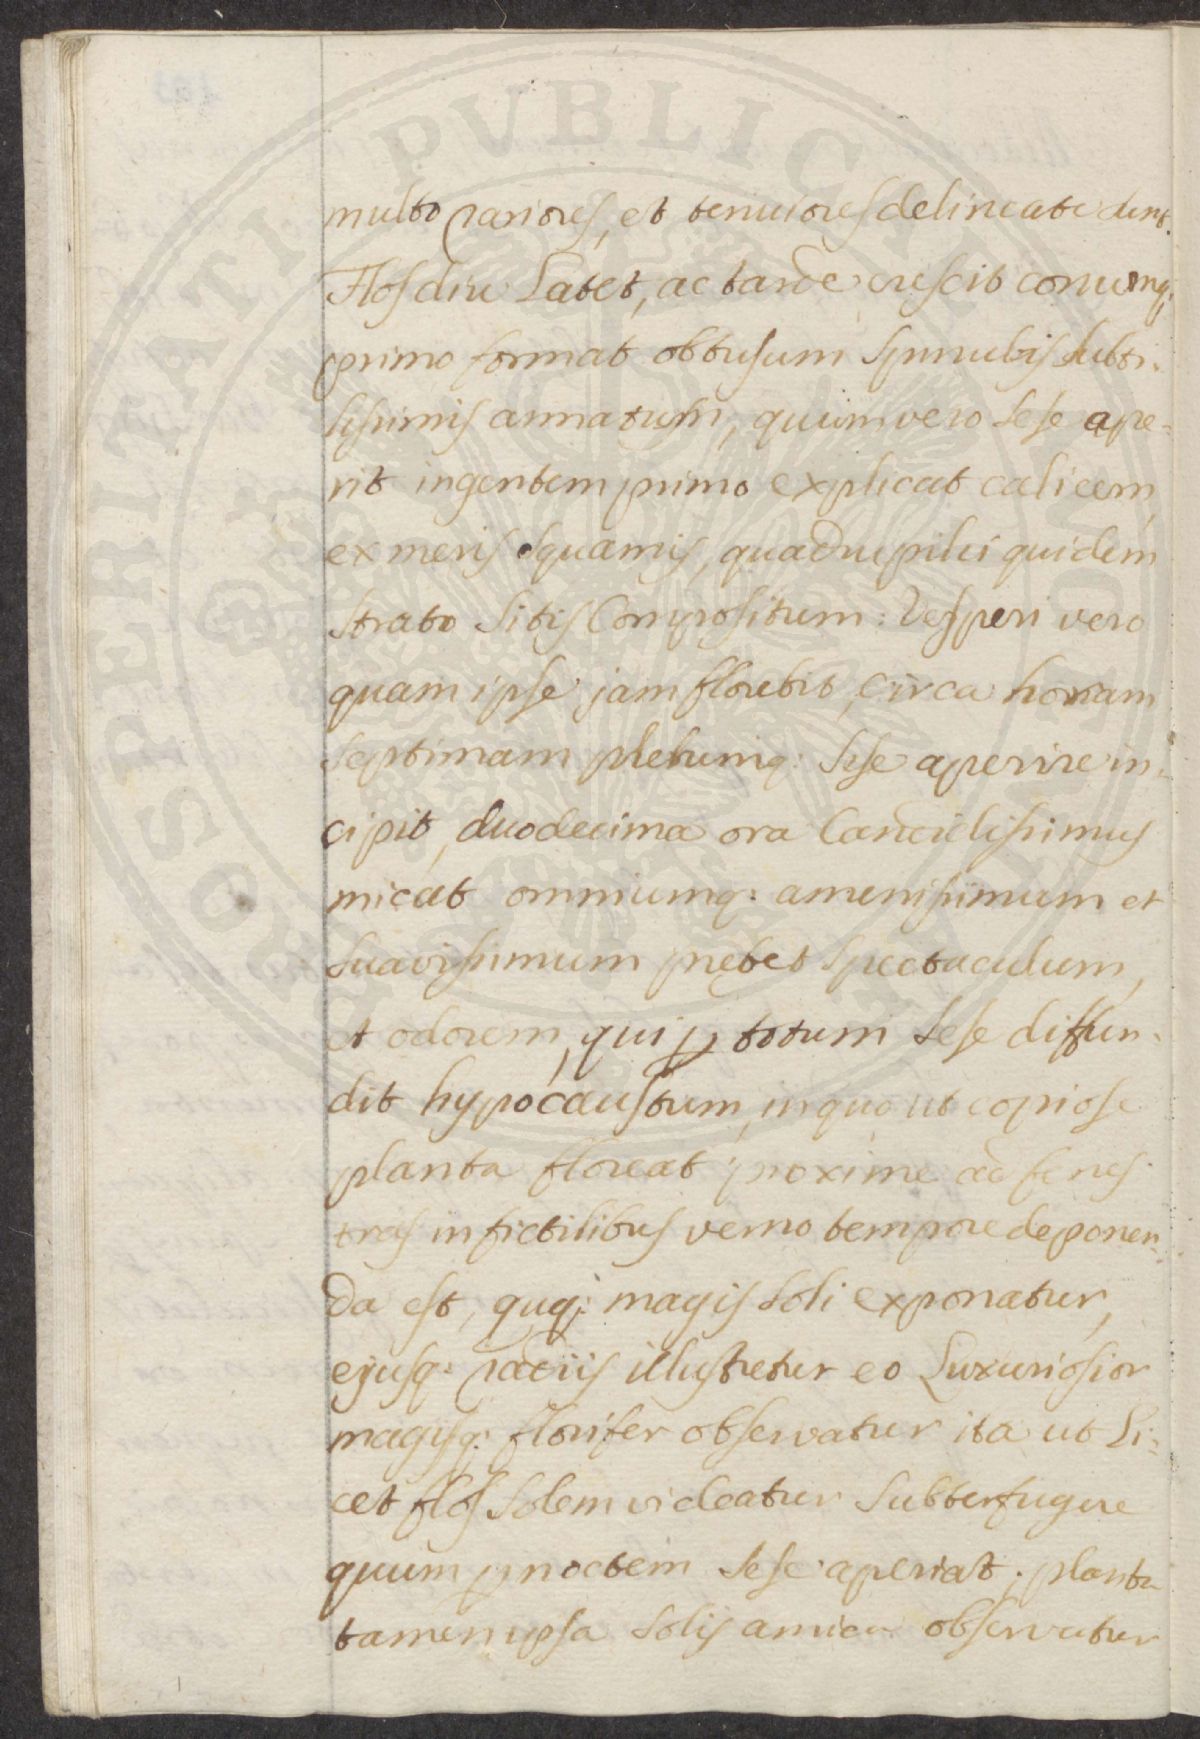 multo rariores, et tenuiores delineate sunt.
Flos diu Latet, ac tarde crescit conumq;
primo format obtusum spinulis subti-
lissimis armatum, quum vero sese ape-
rit ingentem primo explicat calicem
ex meris squamis, quadruplici quidem
strato sitis Compositum: Vesperi vero
quam ipse jam florebit, Circa horam
septimam plerumq: sese aperire in-
cipit, duodecima ora Candidissimus
micat omniumq: amenissimum et
suavissimum prębet spectaculum,
et odorem, qui p totum sese diffun-
dit hypocaustum, in quo ut copiose
planta floreat proxime ad fenes-
tras in fictilibus verno tempore deponen-
da est, quq; magis soli exponatur,
ejusq: radiis illustretur eo Luxuriosior
magisq: florifer observatur ita ut Li-
cet flos solem videatur subterfugere
quum p noctem sese aperiat; planta
tamen ipsa solis amica observatur
PROSPERITATI PUBLICAE